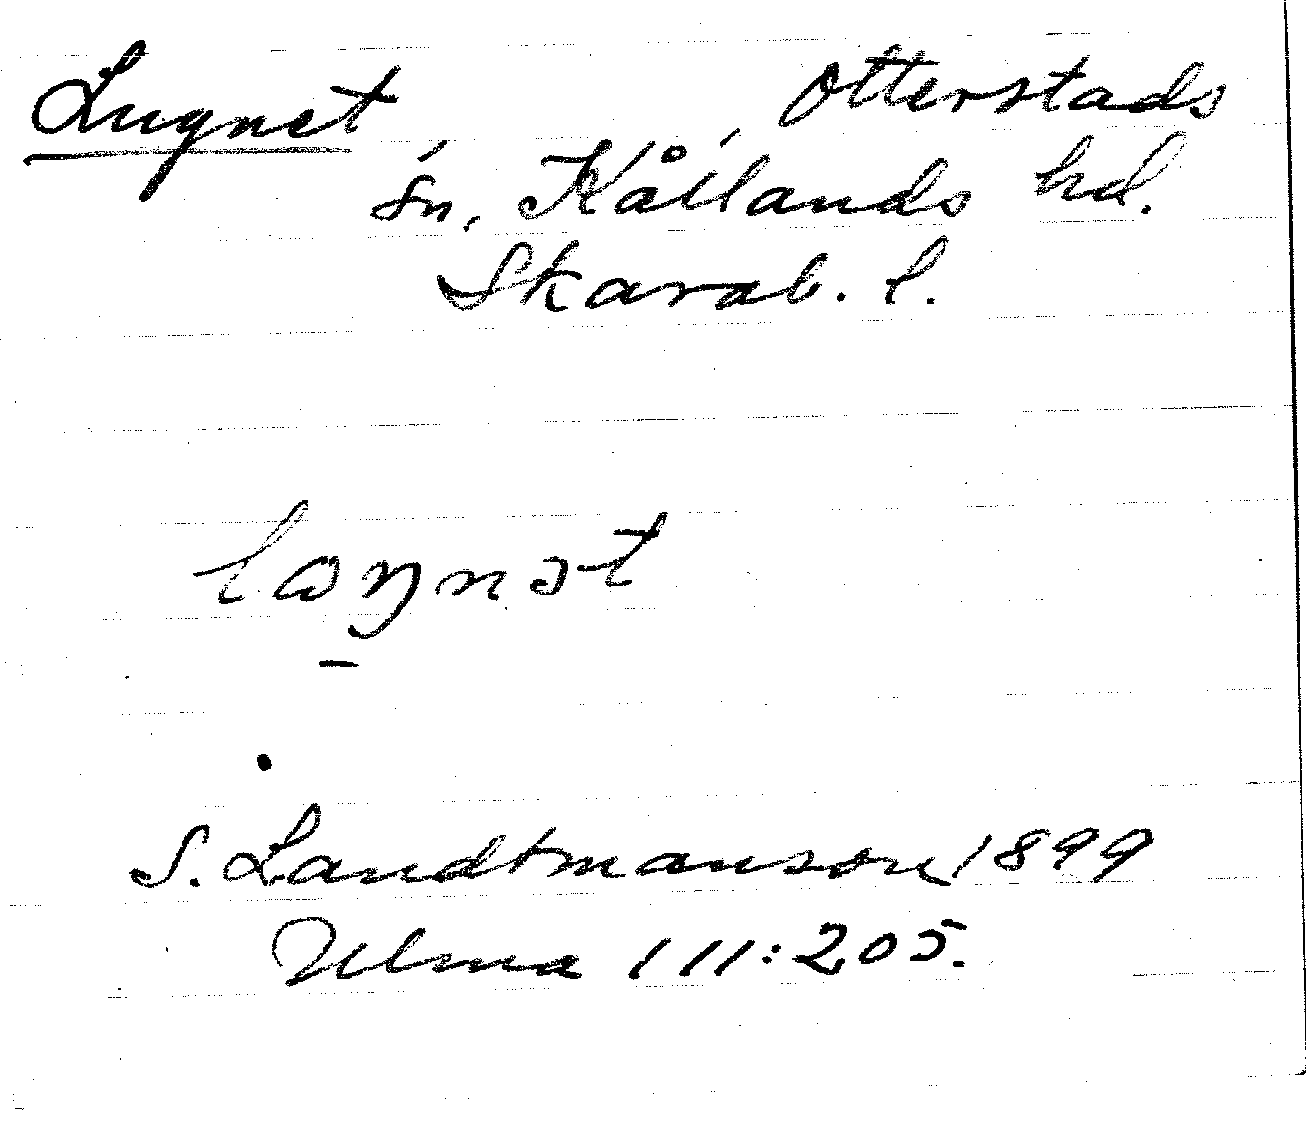 Lugnet Otterstads
sn, Kållands hd.
Skarab. l.
loŋnət
S. Landtmanson 1899
Ulma 111:205.